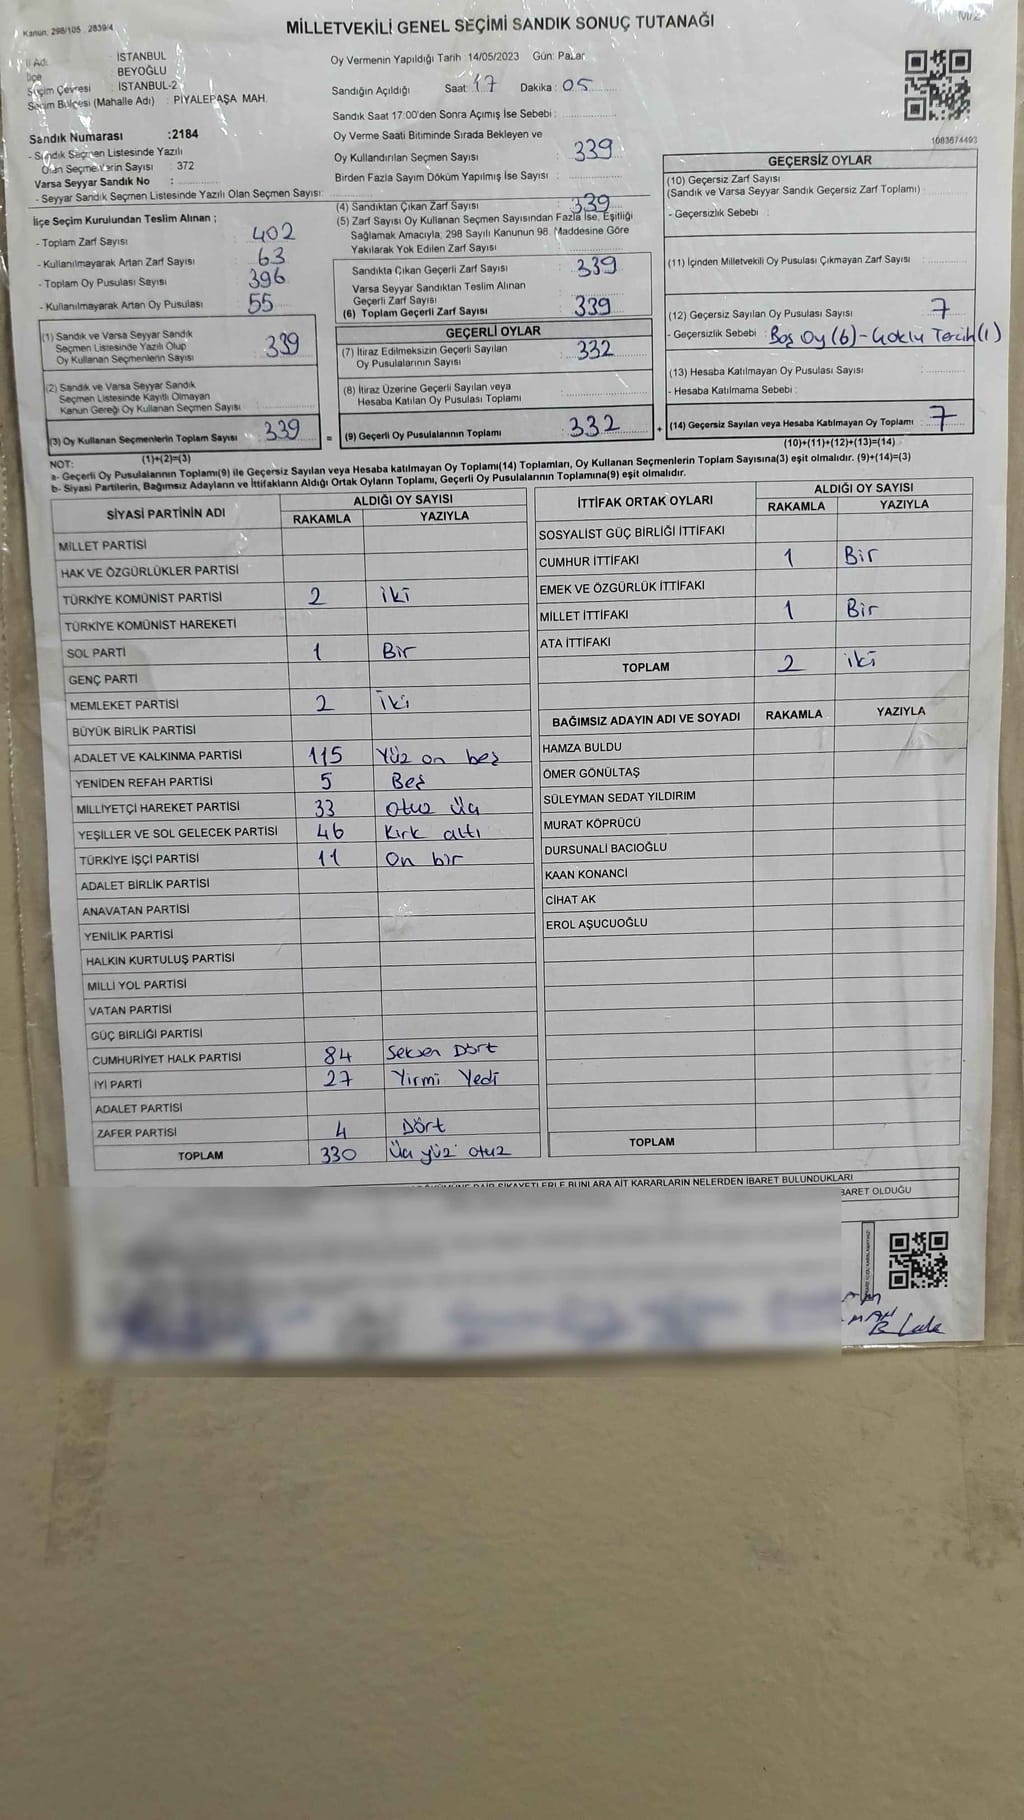 Kanun, 298/105 2839/4
MİLLETVEKİLİ GENEL SEÇİMİ SANDIK SONUÇ TUTANAĞI
M/2
İl Adı : İSTANBUL
İlçe : BEYOĞLU
Seçim Çevresi : İSTANBUL-2
Seçim Bölgesi (Mahalle Adı) : PİYALEPAŞA MAH.
Sandık Numarası :2184
- Sandık Seçmen Listesinde Yazılı
Olan Seçmenlerin Sayısı : 372
Varsa Seyyar Sandık No :
- Seyyar Sandık Seçmen Listesinde Yazılı Olan Seçmen Sayısı:
Oy Vermenin Yapıldığı Tarih :14/05/2023 Gün: Pazar
Sandığın Açıldığı Saat: 17 Dakika: 05
Sandık Saat 17:00'den Sonra Açımış İse Sebebi :
Oy Verme Saati Bitiminde Sırada Bekleyen ve
Oy Kullandırılan Seçmen Sayısı : 339
Birden Fazla Sayım Döküm Yapılmış İse Sayısı :
1083674493
İlçe Seçim Kurulundan Teslim Alınan ;
- Toplam Zarf Sayısı : 402
- Kullanılmayarak Artan Zarf Sayısı : 63
- Toplam Oy Pusulası Sayısı : 396
- Kullanılmayarak Artan Oy Pusulası : 55
(1) Sandık ve Varsa Seyyar Sandık
Seçmen Listesinde Yazılı Olup
Oy Kullanan Seçmenlerin Sayısı : 339
(2) Sandık ve Varsa Seyyar Sandık
Seçmen Listesinde Kayıtlı Olmayan
Kanun Gereği Oy Kullanan Seçmen Sayısı :
(3) Oy Kullanan Seçmenlerin Toplam Sayısı : 339
(1)+(2)=(3)
(4) Sandıktan Çıkan Zarf Sayısı : 339
(5) Zarf Sayısı Oy Kullanan Seçmen Sayısından Fazla İse, Eşitliği
Sağlamak Amacıyla, 298 Sayılı Kanunun 98. Maddesine Göre
Yakılarak Yok Edilen Zarf Sayısı :
Sandıkta Çıkan Geçerli Zarf Sayısı : 339
Varsa Seyyar Sandıktan Teslim Alınan
Geçerli Zarf Sayısı :
(6) Toplam Geçerli Zarf Sayısı : 339
GEÇERLİ OYLAR
(7) İtiraz Edilmeksizin Geçerli Sayılan
Oy Pusulalarının Sayısı : 332
(8) İtiraz Üzerine Geçerli Sayılan veya
Hesaba Katılan Oy Pusulası Toplamı :
= (9) Geçerli Oy Pusulalarının Toplamı : 332 +
GEÇERSİZ OYLAR
(10) Geçersiz Zarf Sayısı
(Sandık ve Varsa Seyyar Sandık Geçersiz Zarf Toplamı) :
- Geçersizlik Sebebi :
(11) İçinden Milletvekili Oy Pusulası Çıkmayan Zarf Sayısı :
(12) Geçersiz Sayılan Oy Pusulası Sayısı : 7
- Geçersizlik Sebebi : Boş Oy (6) - Çoklu Tercih (1)
(13) Hesaba Katılmayan Oy Pusulası Sayısı :
- Hesaba Katılmama Sebebi :
(14) Geçersiz Sayılan veya Hesaba Katılmayan Oy Toplamı : 7
(10)+(11)+(12)+(13)=(14)
NOT:
a- Geçerli Oy Pusulalarının Toplamı(9) ile Geçersiz Sayılan veya Hesaba katılmayan Oy Toplamı(14) Toplamları, Oy Kullanan Seçmenlerin Toplam Sayısına(3) eşit olmalıdır. (9)+(14)=(3)
b- Siyasi Partilerin, Bağımsız Adayların ve İttifakların Aldığı Ortak Oyların Toplamı, Geçerli Oy Pusulalarının Toplamına(9) eşit olmalıdır.
SİYASİ PARTİNİN ADI
ALDIĞI OY SAYISI
RAKAMLA YAZIYLA
MİLLET PARTİSİ
HAK VE ÖZGÜRLÜKLER PARTİSİ
TÜRKİYE KOMÜNİST PARTİSİ 2 iki
TÜRKİYE KOMÜNİST HAREKETİ
SOL PARTİ 1 Bir
GENÇ PARTİ
MEMLEKET PARTİSİ 2 İki
BÜYÜK BİRLİK PARTİSİ
ADALET VE KALKINMA PARTİSİ 115 Yüz on beş
YENİDEN REFAH PARTİSİ 5 Beş
MİLLİYETÇİ HAREKET PARTİSİ 33 otuz üç
YEŞİLLER VE SOL GELECEK PARTİSİ 46 Kırk altı
TÜRKİYE İŞÇİ PARTİSİ 11 on bir
ADALET BİRLİK PARTİSİ
ANAVATAN PARTİSİ
YENİLİK PARTİSİ
HALKIN KURTULUŞ PARTİSİ
MİLLİ YOL PARTİSİ
VATAN PARTİSİ
GÜÇ BİRLİĞİ PARTİSİ
CUMHURİYET HALK PARTİSİ 84 Seksen Dört
İYİ PARTİ 27 Yirmi Yedi
ADALET PARTİSİ
ZAFER PARTİSİ 4 Dört
TOPLAM 330 Üç yüz otuz
İTTİFAK ORTAK OYLARI
ALDIĞI OY SAYISI
RAKAMLA YAZIYLA
SOSYALİST GÜÇ BİRLİĞİ İTTİFAKI
CUMHUR İTTİFAKI 1 Bir
EMEK VE ÖZGÜRLÜK İTTİFAKI
MİLLET İTTİFAKI 1 Bir
ATA İTTİFAKI
TOPLAM 2 iki
BAĞIMSIZ ADAYIN ADI VE SOYADI RAKAMLA YAZIYLA
HAMZA BULDU
ÖMER GÖNÜLTAŞ
SÜLEYMAN SEDAT YILDIRIM
MURAT KÖPRÜCÜ
DURSUNALİ BACIOĞLU
KAAN KONANCİ
CİHAT AK
EROL AŞUCUOĞLU
TOPLAM
ŞİKAYETLERLE BUNLARA AİT KARARLARIN NELERDEN İBARET BULUNDUKLARI
BARET OLDUĞU